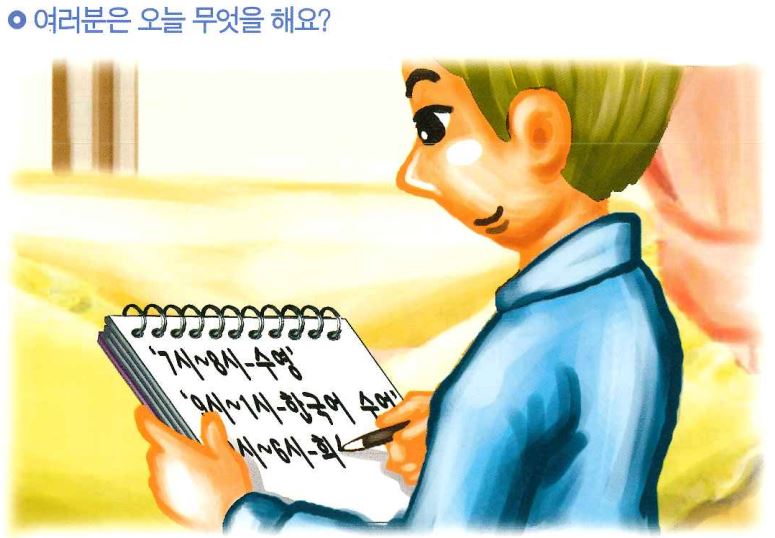 여러분은 오늘 무엇을 해요?
'7시~8시-수영'
'9시~1시-한국어 수업'
시~6시-회